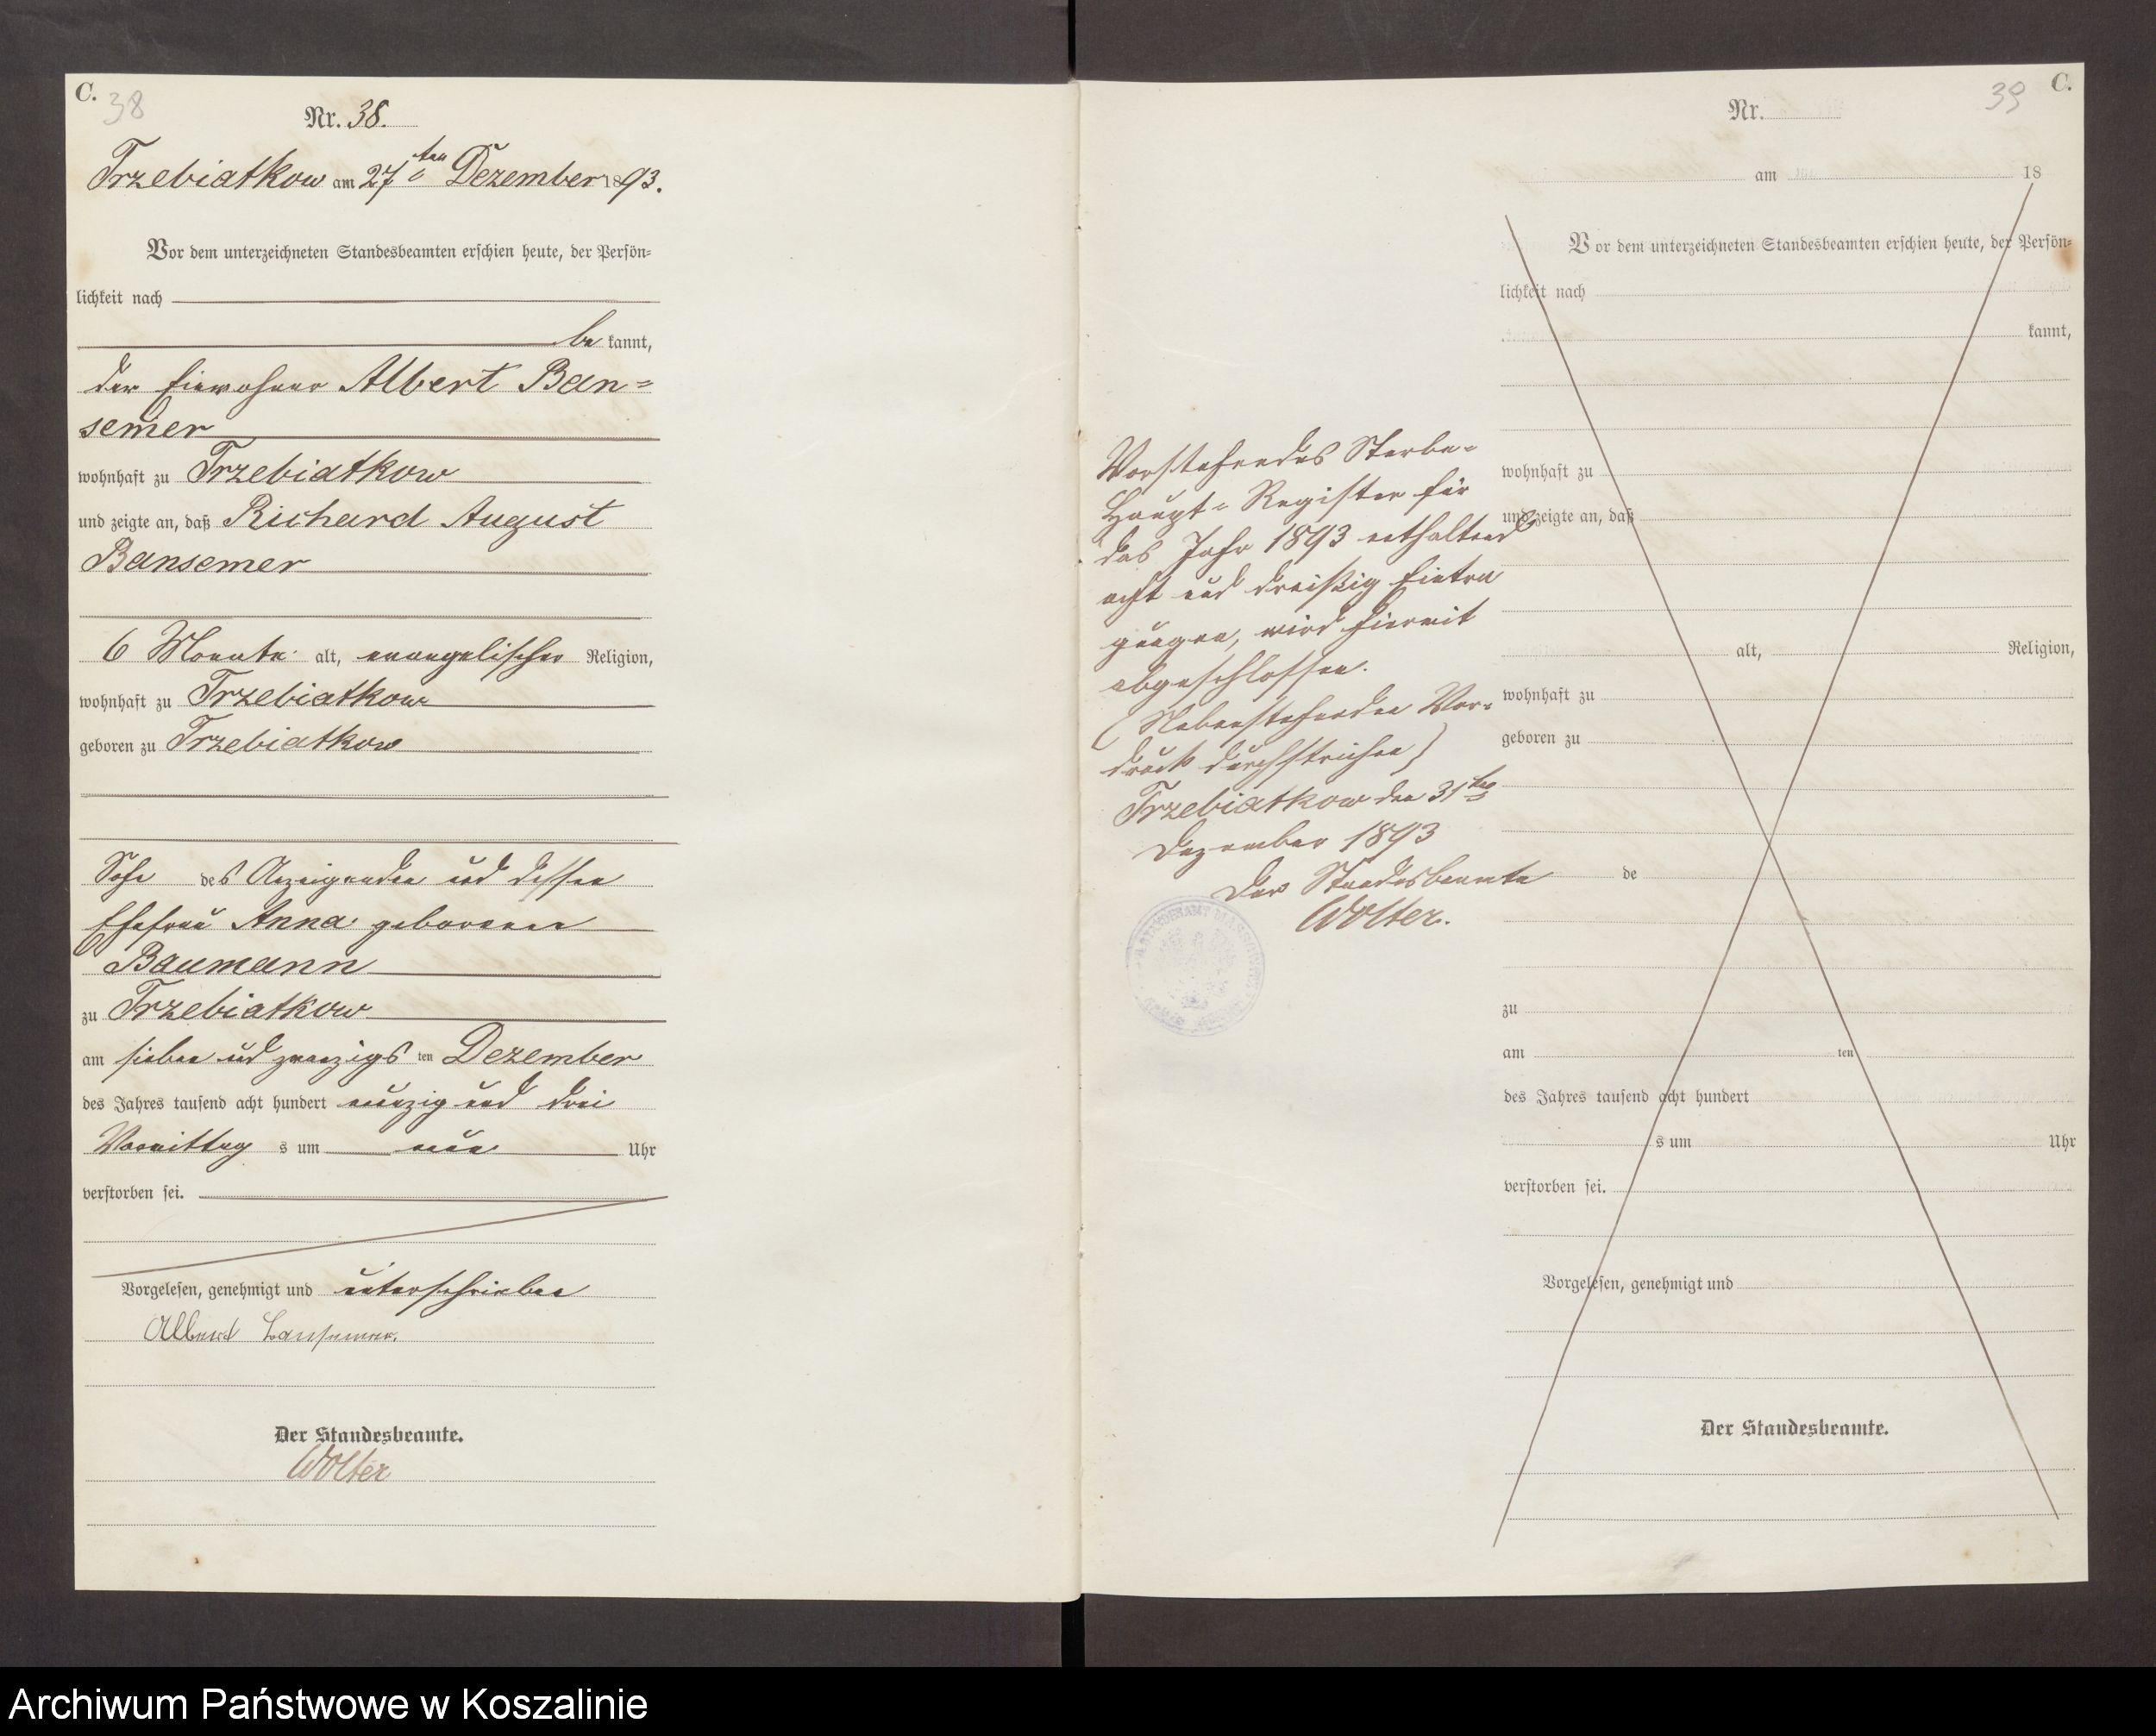 C.
38
Nr. 38.
Trzebiatkow am 27ten Dezember 1893.
Vor dem unterzeichneten Standesbeamten erschien heute, der Persön=
lichkeit nach
be kannt,
der Einwohner Albert Ban=
semer
wohnhaft zu Trzebiatkow
und zeigte an, daß Richard August
Bansemer
6 Monate alt, evangelischer Religion,
wohnhaft zu Trzebiatkow
geboren zu Trzebiatkow
Sohn des Anzeigenden und dessen
Ehefrau Anna geborenen
Baumann
zu Trzebiatkow
am sieben und zwanzigs ten Dezember
des Jahres tausend acht hundert neunzig und drei
Vormittag s um neun Uhr
verstorben sei.
Vorgelesen, genehmigt und unterschrieben
Albert Bansemer.
Der Standesbeamte.
Wolter
39
C.
Nr.
am 18
Vor dem unterzeichneten Standesbeamten erschien heute, der Persön=
lichkeit nach
kannt,
wohnhaft zu
und zeigte an, daß
alt, Religion,
wohnhaft zu
geboren zu
de
zu
am ten
des Jahres tausend acht hundert
s um Uhr
verstorben sei.
Vorgelesen, genehmigt und
Der Standesbeamte.
Vorstehendes Sterbe=
Haupt=Register für
das Jahr 1893 enthaltend
acht und dreißig Eintra
gungen, wird hiermit
abgeschlossen.
(Nebenstehenden Vor=
druck durchstrichen)
Trzebiatkow den 31ten
Dezember 1893
Der Standesbeamte
Wolter.
Archiwum Państwowe w Koszalinie